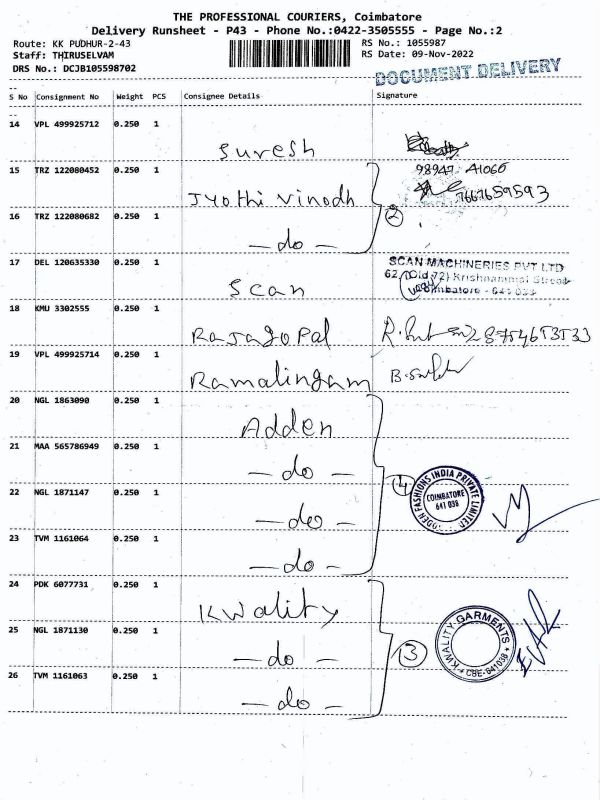 THE PROFESSIONAL COURIERS, Coimbatore
Delivery Runsheet - P43 - Phone No.:0422-3505555 - Page No.:2
Route: KK PUDHUR-2-43
RS No.: 1055987
Staff: THIRUSELVAM
RS Date: 09-Nov-2022
DRS No.: DCJB105598702
DOCUMENT DELIVERY
S No Consignment No Weight PCS Consignee Details Signature
14 VPL 499925712 0.250 1
Suresh
15 TRZ 122080452 0.250 1
98947 41060
Jyothi Vinodh
7667659593
16 TRZ 122080682 0.250 1
2
- do -
17 DEL 120635330 0.250 1
SCAN MACHINERIES PVT LTD
62, (Old 72) Krishnammal Street
Scan
Coimbatore - 641 033
18 KMU 3302555 0.250 1
Rajagopal
19 VPL 499925714 0.250 1
Ramalingam
20 NGL 1863090 0.250 1
Adden
21 MAA 565786949 0.250 1
- do -
4
22 NGL 1871147 0.250 1
ADDEN FASHIONS INDIA PRIVATE LIMITED
COIMBATORE
641 038
- do -
23 TVM 1161064 0.250 1
- do -
24 PDK 6077731 0.250 1
Kwality
25 NGL 1871130 0.250 1
KWALITY GARMENTS
CBE-641038
3
- do -
26 TVM 1161063 0.250 1
- do -